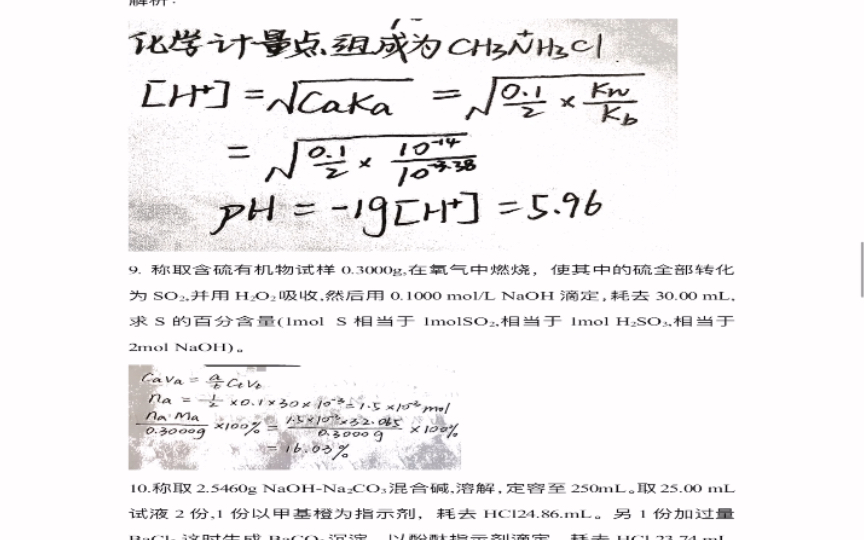 解析:
化学计量点组成为CH3N⁺H3Cl
[H⁺] = √CaKa = √0.1/2 × Kw/Kb
= √0.1/2 × 10⁻¹⁴/10⁻³·³⁸
pH = -lg[H⁺] = 5.96
9. 称取含硫有机物试样 0.3000g,在氧气中燃烧，使其中的硫全部转化
为 SO₂,并用 H₂O₂ 吸收,然后用 0.1000 mol/L NaOH 滴定,耗去 30.00 mL,
求 S 的百分含量(1mol S 相当于 1molSO₂,相当于 1mol H₂SO₃,相当于
2mol NaOH)。
CaVa = a/b CbVb
na = 1/2 × 0.1×30×10⁻³ = 1.5×10⁻³mol
na·Ma/0.3000g ×100% = 1.5×10⁻³×32.065/0.3000g ×100%
= 16.03%
10.称取 2.5460g NaOH-Na₂CO₃混合碱,溶解,定容至 250mL。取 25.00 mL
试液 2 份,1 份以甲基橙为指示剂，耗去 HCl24.86.mL。另 1 份加过量
BaCl₂ 这时生成 BaCO₃ 沉淀，以酚酞指示剂滴定，耗去 HCl 23.74 mL